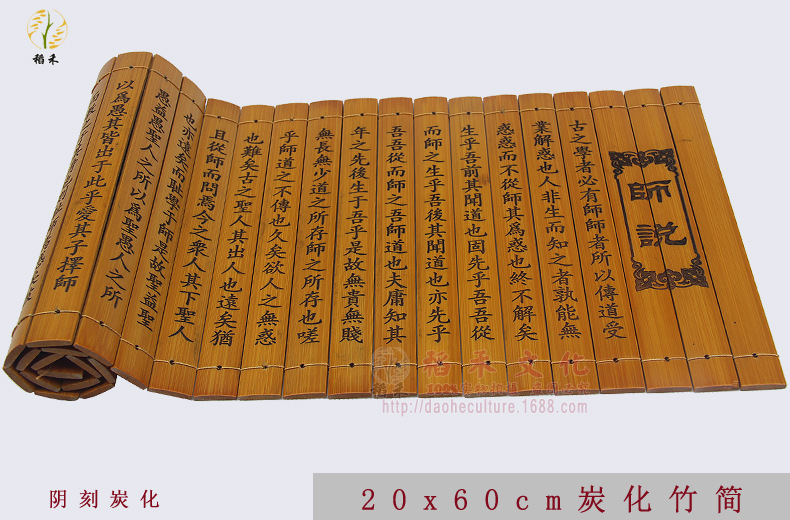 稻禾
師說
古之學者必有師師者所以傳道受
業解惑也人非生而知之者孰能無
惑惑而不從師其爲惑也終不解矣
生乎吾前其聞道也固先乎吾吾從
而師之生乎吾後其聞道也亦先乎
吾吾從而師之吾師道也夫庸知其
年之先後生于吾乎是故無貴無賤
無長無少道之所存師之所存也嗟
乎師道之不傳也久矣欲人之無惑
也難矣古之聖人其出人也遠矣猶
且從師而問焉今之衆人其下聖人
也亦遠矣而耻學于師是故聖益聖
愚益愚聖人之所以爲聖愚人之所
以爲愚其皆出于此乎愛其子擇師
稻禾文化
稻禾
http://daoheculture.1688.com
阴刻炭化
20x60cm炭化竹简